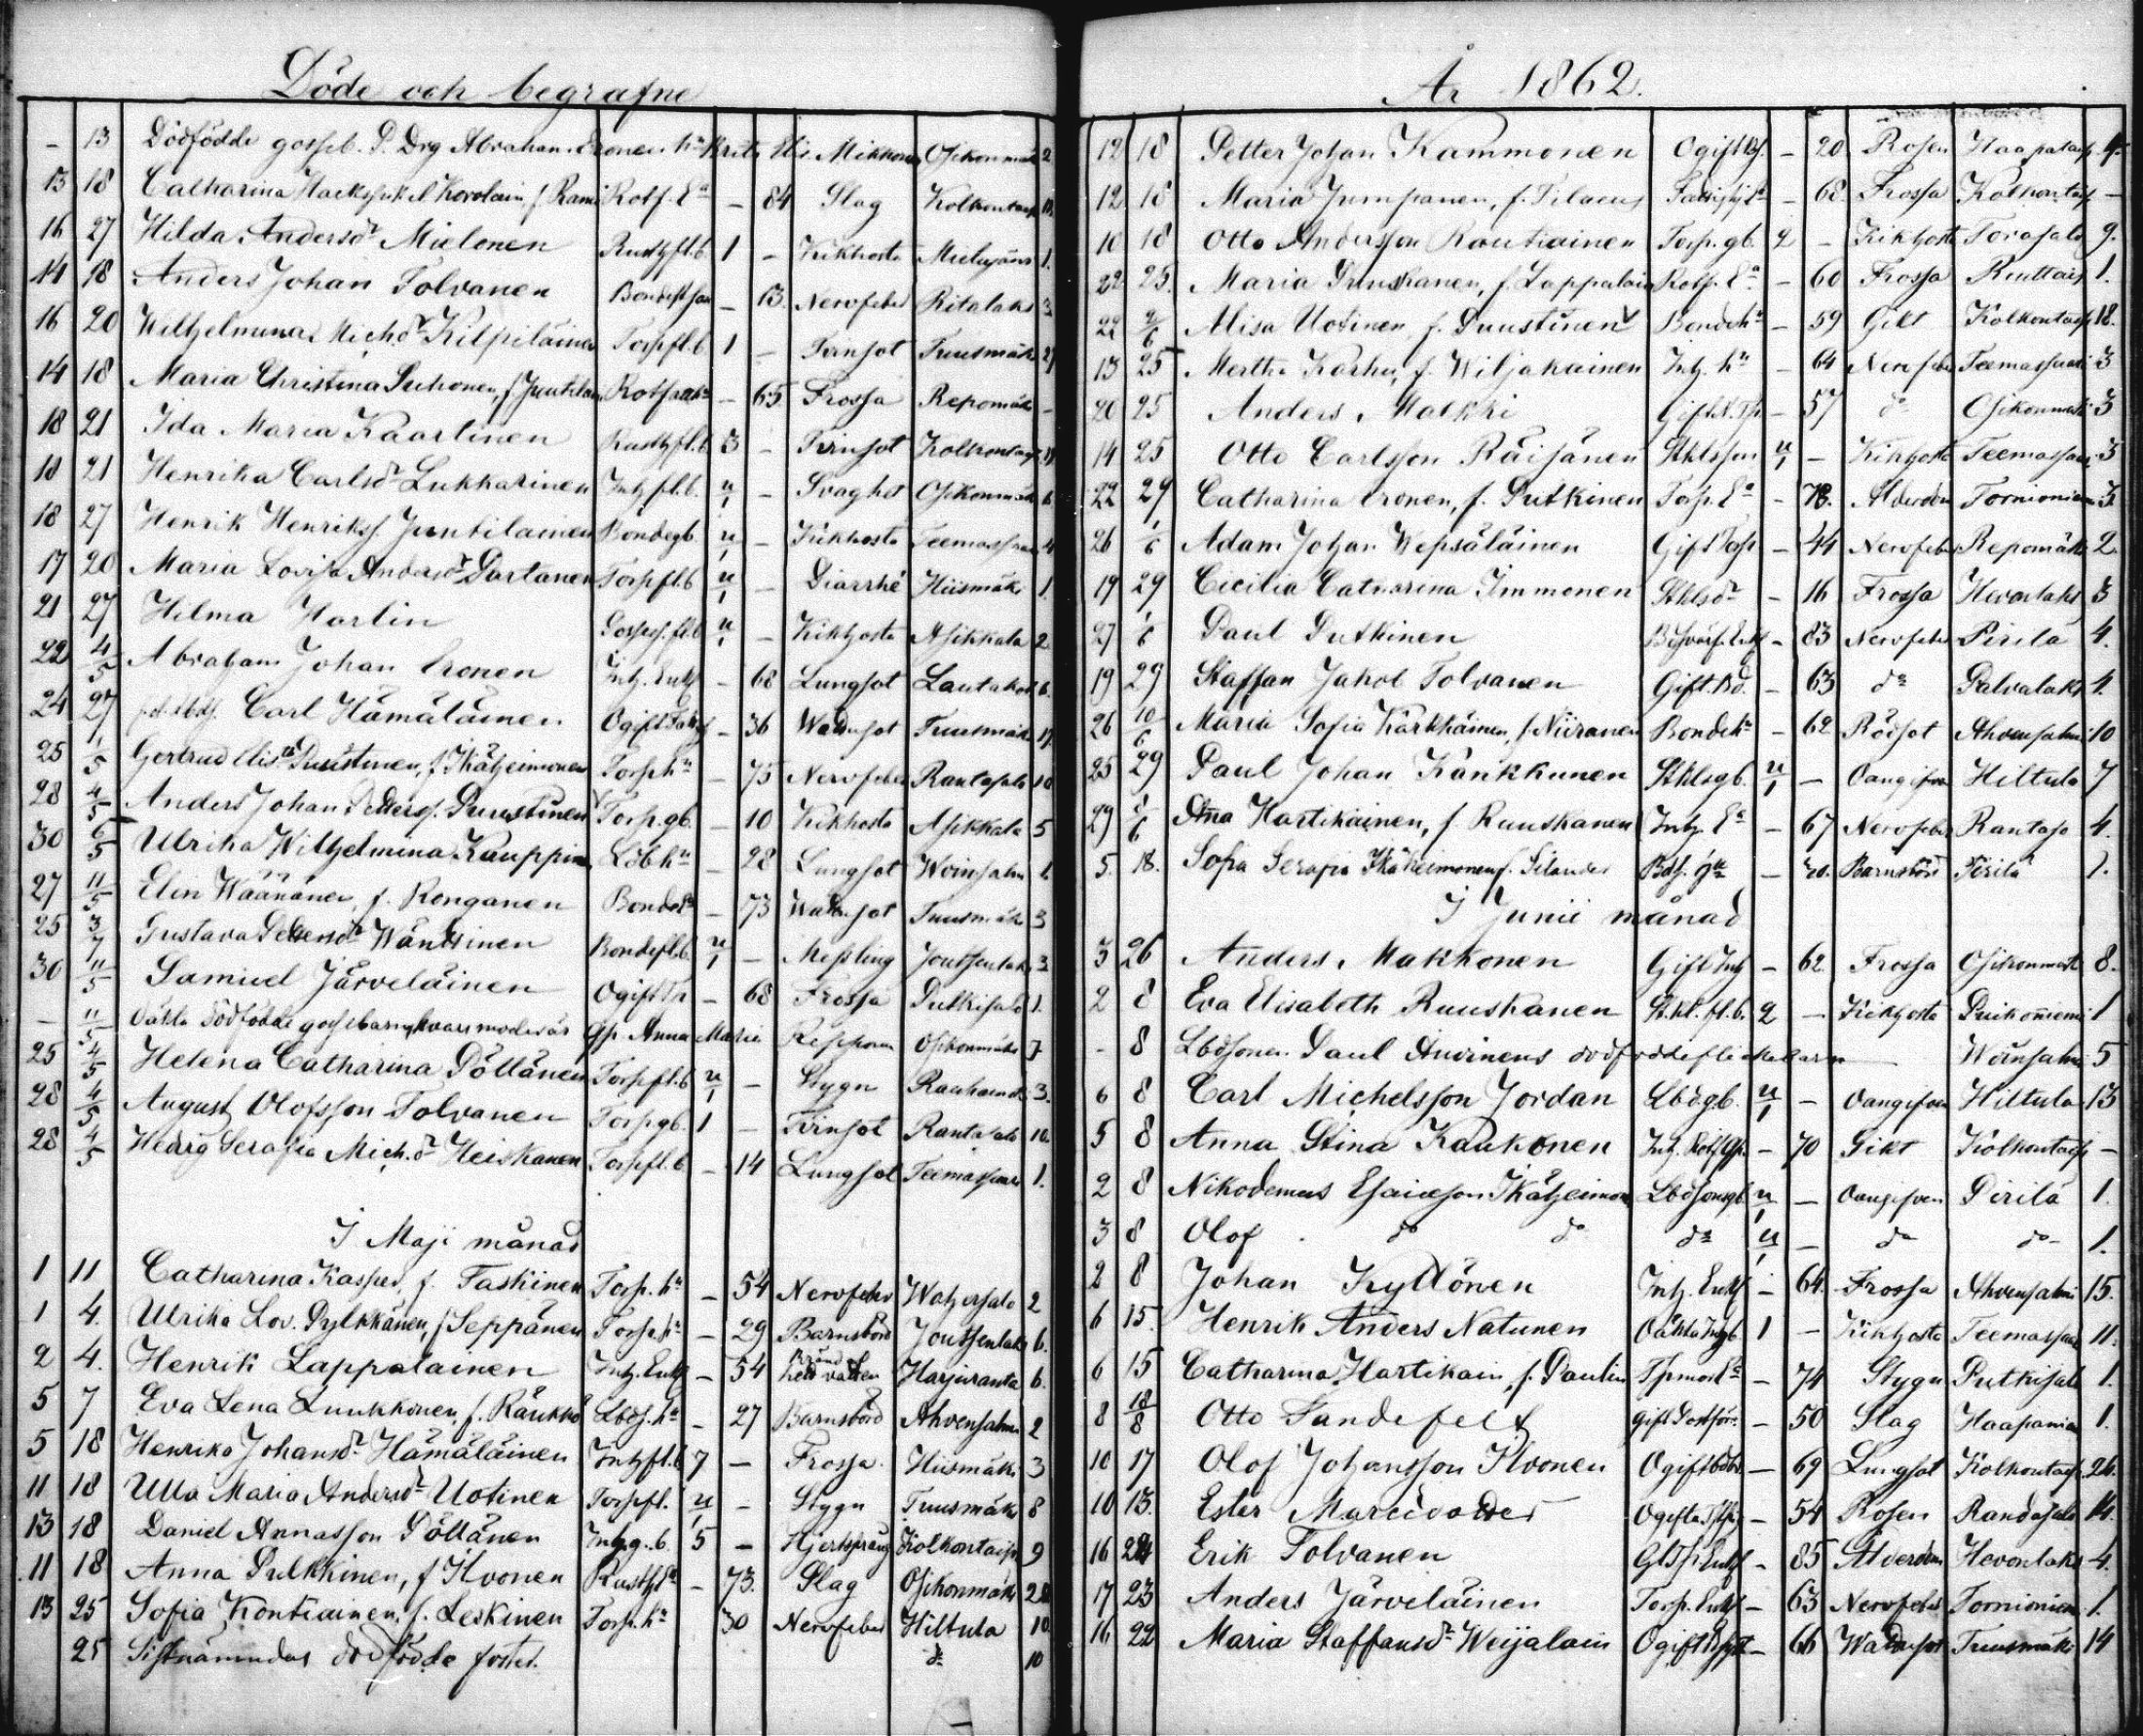 Döde och begrafne
- 13 Dödfödde gosseb. P. Drg Abraham Eronen hu Brita Elis. Mikkonen Osikonmäki 2
13 18 Catharina Korolain, f. Rotf. Ea - 84 Slag Kolkontaip
16 27 Hilda Andersdr Mielonen Rusthfl.b. 1 - Kikhosta 1.
14 18 Anders Johan Tolvanen Bondest son - 13. Nervfeber Ritalaks 3
16 20 Wilhelmina Michdr Kilpiläinen Torpfl.b 1 - Tvinsot Tuusmäk 27
14 18 Maria Christina - 65 Frossa Repomäk -
18 21 Ida Maria Kaartinen Rusthfl.b. 3 - Tvinsot Kolkontaip
18 21 Henrika Carlsdr Lukkarinen Inhfl.b. u/1 - Svaghet Osikonmäk 6
18 27 Henrik Henrikss. Juntilainen Bondegb. u/1 - Kikhosta Teemassaari 4
17 20 Maria Lovisa Andersdr Partanen Torpfl.b u/1 - Diarrhé Hiismäki 1.
21 27 Hilma Harlin u/1 - Kikhosta Asikkala 2
22 4/5 Abraham Johan Eronen Inh. Enkl - 68 Lungsot 6.
24 27 Carl Hämäläinen Ogift - 36 Wattusot Tuusmäki
25 1/5 Gertrud Elis. Puustinen, f. Ikäheimonen Torp.hu - 75 Nervfeber Rantasalo 10
28 4/5 Anders Johan Petterss. Puustinen Torp.gb. - 10 Kikhosta Asikkala 5
30 6/5 Ulrika Wilhelmina Kauppin Ldb hu - 28 Lungsot Woinsalmi 1.
27 11/5 Elin Wäänänen, f. Ronganen - 73 Wattusot Tuusmäk 3
25 3/7 Gustava Pettersdr Wänttinen Bondefl.b. u/1 - Messling Joutsenlaks 3
30 11/5 Samuel Järveläinen Ogift - 68 Frossa Putkisalo 1.
- 11/5 Oäkta dödfödde gossebarn, hvars moder är Gp. Anna Maria Repponen Osikonmäki 7
25 4/5 Helena Catharina Pöllänen Torpfl.b u/1 - Stygn 3.
28 4/5 August Olofsson Tolvanen Torpgb. 1 - Tvinsot Rantasalo 10.
28 4/5 Hedvig Serafia Mich.dr Heiskanen Torpfl.b - 14 Lungsot Teemassaari 1.
I Maji månad
1 11 Catharina Kasper, f. Taskinen Torp.hu - 54 Nervfeber Watzersalo 2
1 4. Ulrika Lov. Pylkkänen, f. Seppänen Torp.hu - 29 Barnsbörd Joutsenlaks 6.
2 4. Henrik Lappalainen Inh. Enkl - 54 Bränd hett vatten Harjuranta 6.
5 7 Eva Lena Luukkonen, f. Räukkö Lbdf. hu - 27 Barnsbörd Ahvensalmi 2
5 18 Henrika Johansdr Hämäläinen Inhfl.b 7 - Frossa Hiismäki 3
11 18 Ulla Maria Andersdr Uotinen Torpfl. u/1 - Stygn Tuusmäki 8
13 18 Daniel Annasson Pöllänen Inhg.b. 5 - Hjertsprång Kolkontaip 9
11 18 Anna Pulkkinen, f. Ilvonen Rusth Ea - 73. Slag Osikonmäk
13 25 Sofia Kontiainen, f. Leskinen Torp.hu 30 Nervfeber Hiltula 10.
25 Sistnämndes dödfödde foster. do 10
År 1862.
12 18 Petter Johan Kammonen Ogift - 20 Rosen Haapataip 4.
12 18 Maria Jumpanen, f. Tilaeus - 68. Frossa Kolkontaip -
10 18 Otto Andersson Rautiainen Torp.gb. 2 - Kikhosta Torasalo 9.
22 25. Maria Ruuskanen, f. Lappalain Rotf. Ea - 60 Frossa 1.
22 2/6 Alisa Uotinen, f. Puustinen Bondehu - 59 Gikt Kolkontaip 18.
13 25 Mertha Karhu, f. Wiljakainen Inh. hu - 64 Nervfeber Teemassaari 3
20 25 Anders Malkki Gift - 57 do Osikonmäki 3
14 25 Otto Carlsson Räisänen Sthlsson u/1 - Kikhosta Teemassaari 3
22 29 Catharina Eronen, f. Putkinen Torp. Ea - 78. Ålderdom Tornioniemi 3.
26 1/6 Adam Johan Wepsäläinen Gift Torp - 44 Nervfeber Repomäki 2
19 29 Cicilia Catharina Immonen Sthlsdr - 16 Frossa Hevonlaks 3
27 1/6 Paul Putkinen - 83 Nervfeber Pirilä 4.
19 29 Staffan Jakob Tolvanen Gift. Bd. - 63 do Palvalaks 4.
26 10/6 Maria Sofia Kärkkäinen, f. Niiranen Bondehu - 62 Rödsot Ahvensalmi 10
25 29 Paul Johan Känkkunen Sthlsgb. u/1 - Oangifven Hiltula 7
29 8/6 Anna Hartikainen, f. Ruuskanen Inh. Ea - 67 Nervfeber Rantasa 4.
5. 18. Sofia Serafia Ikäheimonen f. Silander - Barnsbörd Pirilä 1.
I Junii månad
3 26 Anders Makkonen Gift Inh - 62 Frossa Osikonmäki 8.
2 8 Eva Elisabeth Ruuskanen St.kl. fl.b. 2 - Kikhosta 1
- 8 Lbdsonen Paul Auvinens dödfödde flickebarn - Woinsalmi 5
6 8 Carl Michelsson Jordan Lbdgb. u/1 - Oangifven Hiltula 13
5 8 Anna Stina Kaukonen - 70 Gikt Kolkontaip -
2 8 Nikodemus Esaiasson Ikäheimon Lbdsonsgb u/1 - Oangifven Pirilä 1.
3 8 Olof do do do u/1 - do do 1.
2 8 Johan Kyllönen Inh. Enkl - 64. Frossa Ahvensalmi 15.
6 15. Henrik Anders Natunen Oäkta Ingb 1 - Kikhosta Teemassaari 11.
6 15 Catharina Hartikain, f. Paulin - 74 Stygn Putkisalo 1.
8 18/8 Otto Sandefelt Gift - 50 Slag Haapaniemi 1.
10 17 Olof Johansson Ilvonen Ogift - 69 Lungsot Kolkontaip 26.
10 13. Ester Ogifta - 54 Rosen Randasalo
16 Erik Tolvanen - 85 Ålderdom Hevonlaks 4.
17 23 Anders Järveläinen Torp. Enkl - 63 Nervfeber Tornioniemi 1.
16 22 Maria Staffansdr Weijalain Ogift - 66 Wattusot Tuusmäki 14